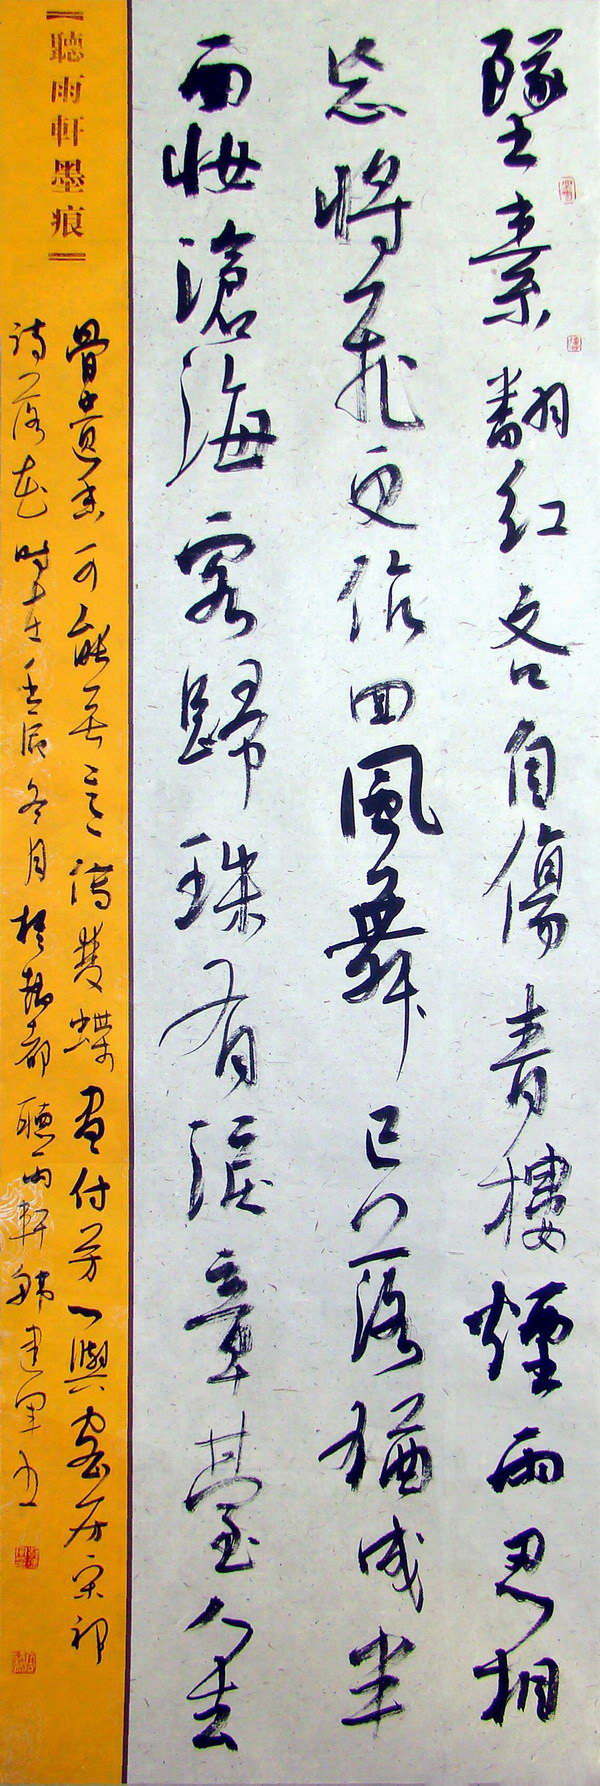 墜素翻紅各自傷青樓煙雨忍相
忘將飛更作回風舞已落猶成半
面妝滄海客歸珠有淚章臺人去
聽雨軒墨痕
骨遺香可能無意傳雙蝶盡付芳心與蜜房宋祁
詩落花時在壬辰冬月於都聽雨軒韓建軍書